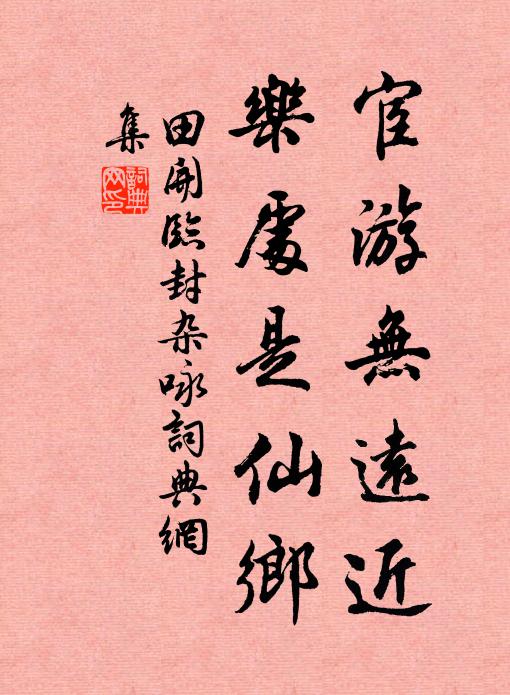 宦游無遠近
樂處是仙鄉
田開臨封杂咏詞典網
集
詞典網印